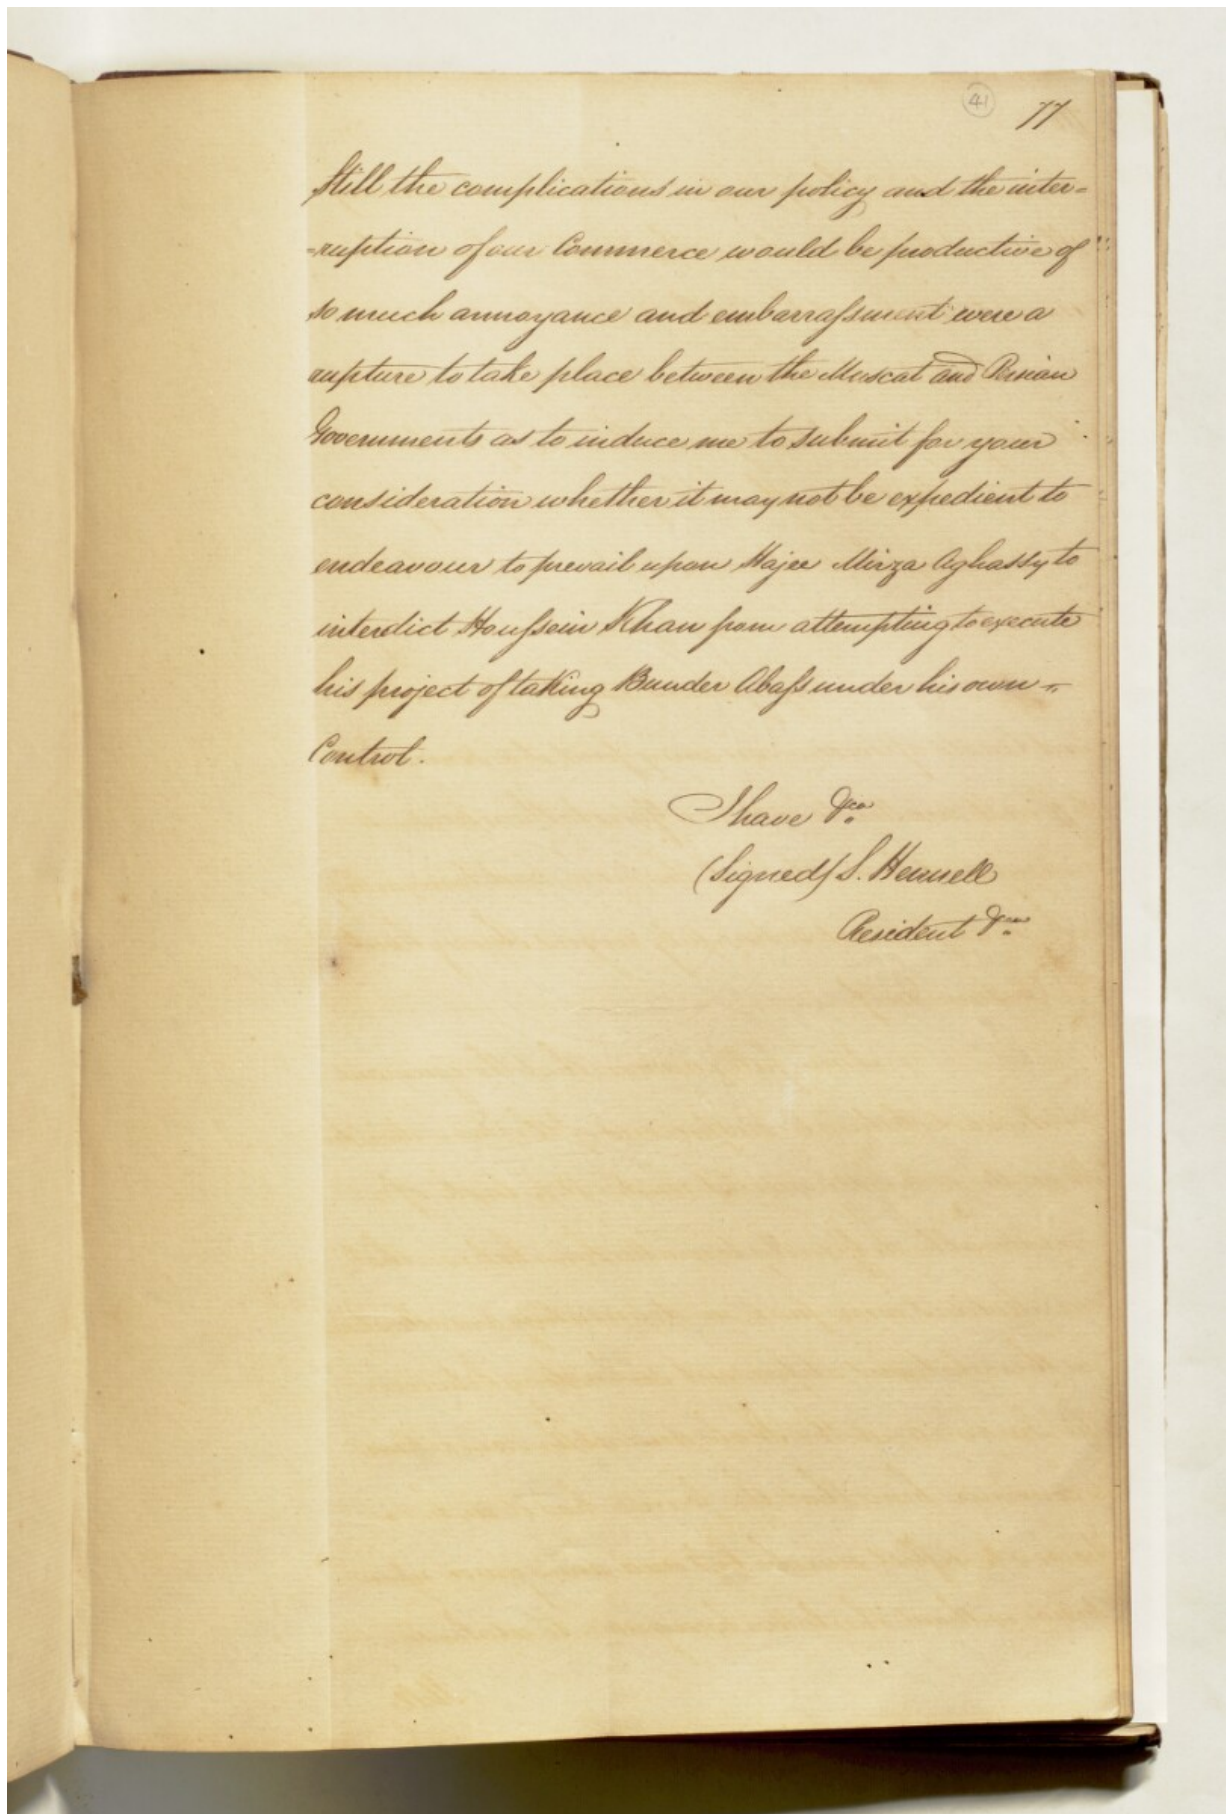 41
77
Still the complications in our policy and the inter=
=ruption of our Commerce would be productive of
so much annoyance and embarraſsment were a
rupture to take place between the Muscat and Persian
Governments as to induce me to submit for your
consideration whether it may not be expedient to
endeavour to prevail upon Hajee Mirza Aghassy to
interdict Houſsein Khan from attempting to execute
his project of taking Bunder Abaſs under his own
Control.
I have &ca
(Signed) S. Hennell
Resident &ca